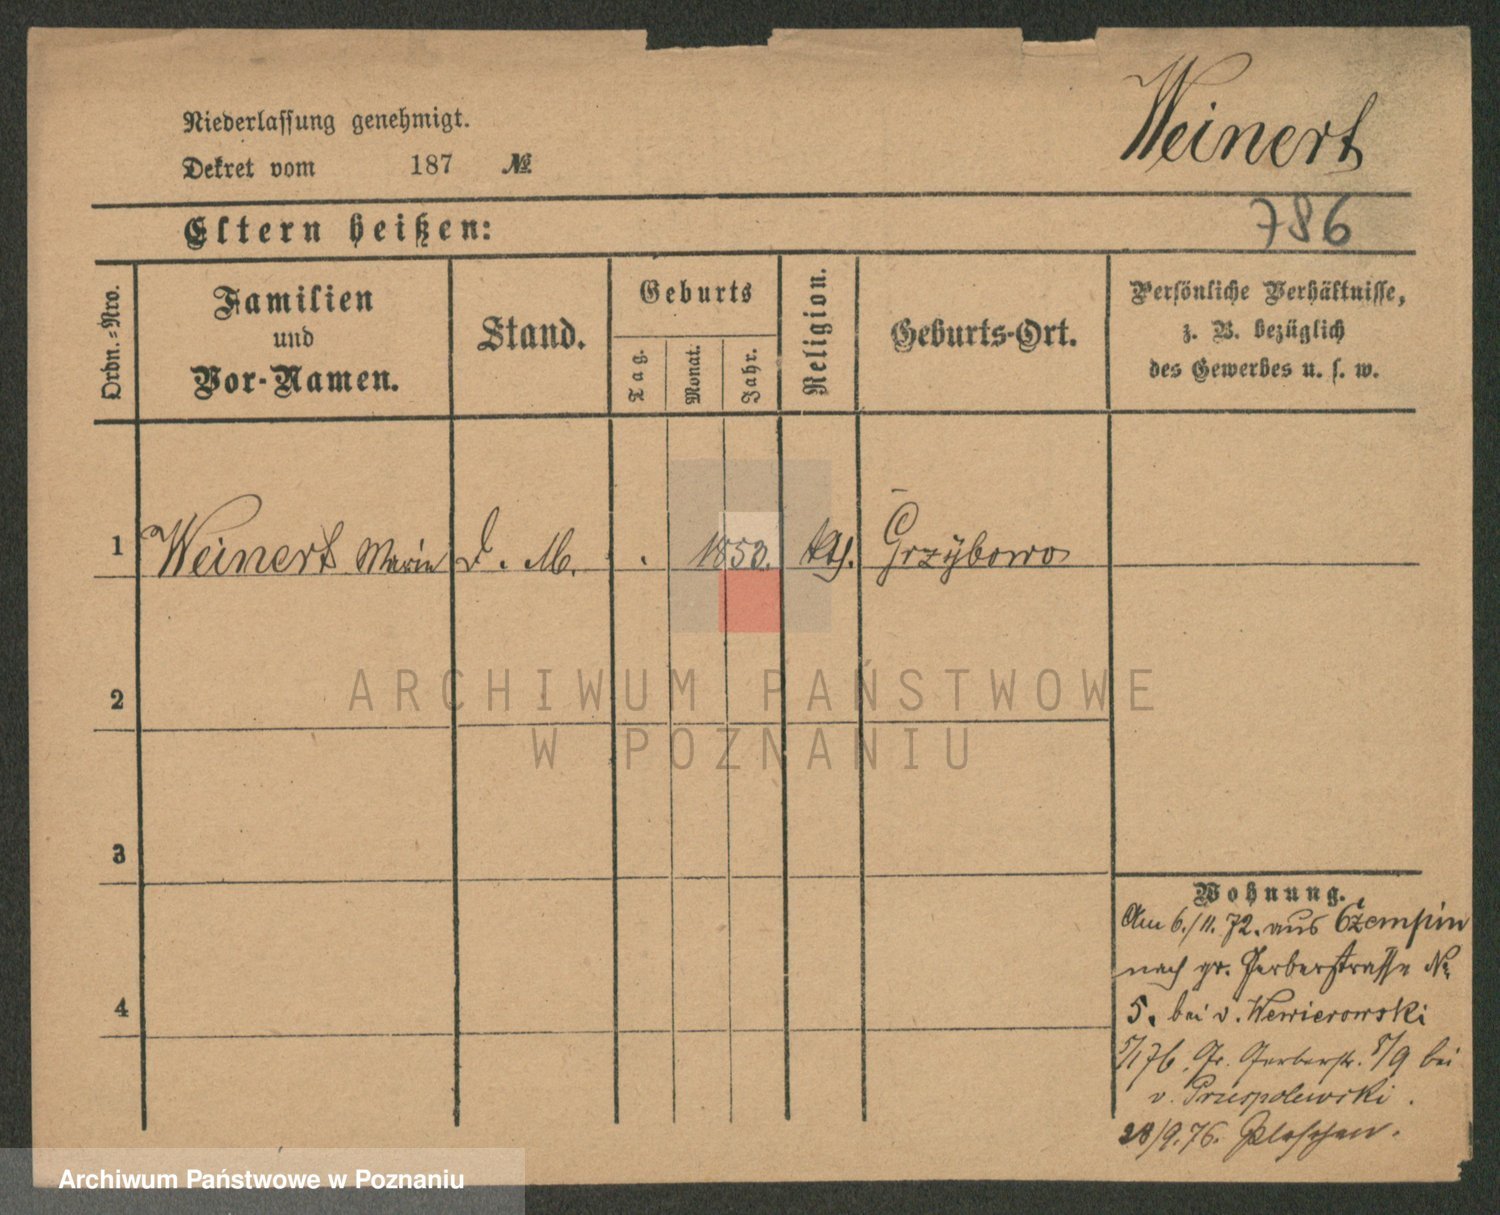 Weinert
Niederlassung genehmigt.
Dekret vom 187 №
786
Eltern heißen:
Ordn.-Nro.
Familien
und
Vor-Namen.
Stand.
Geburts
Tag.
Monat.
Jahr.
Religion.
Geburts-Ort.
Persönliche Verhältnisse,
z. B. bezüglich
des Gewerbes u. s. w.
1 Weinert Marie D. M. 1850. kth. Grzybowo
2
ARCHIWUM PAŃSTWOWE
W POZNANIU
3
4
Wohnung.
Am 6./11. 72. aus Czempin
nach gr. Gerberstrasse №
5. bei v. Wewierowski
5/1 76. Gr. Gerberstr. 8/9 bei
v. Pruspolewski.
28/9. 76. Pleschen.
Archiwum Państwowe w Poznaniu